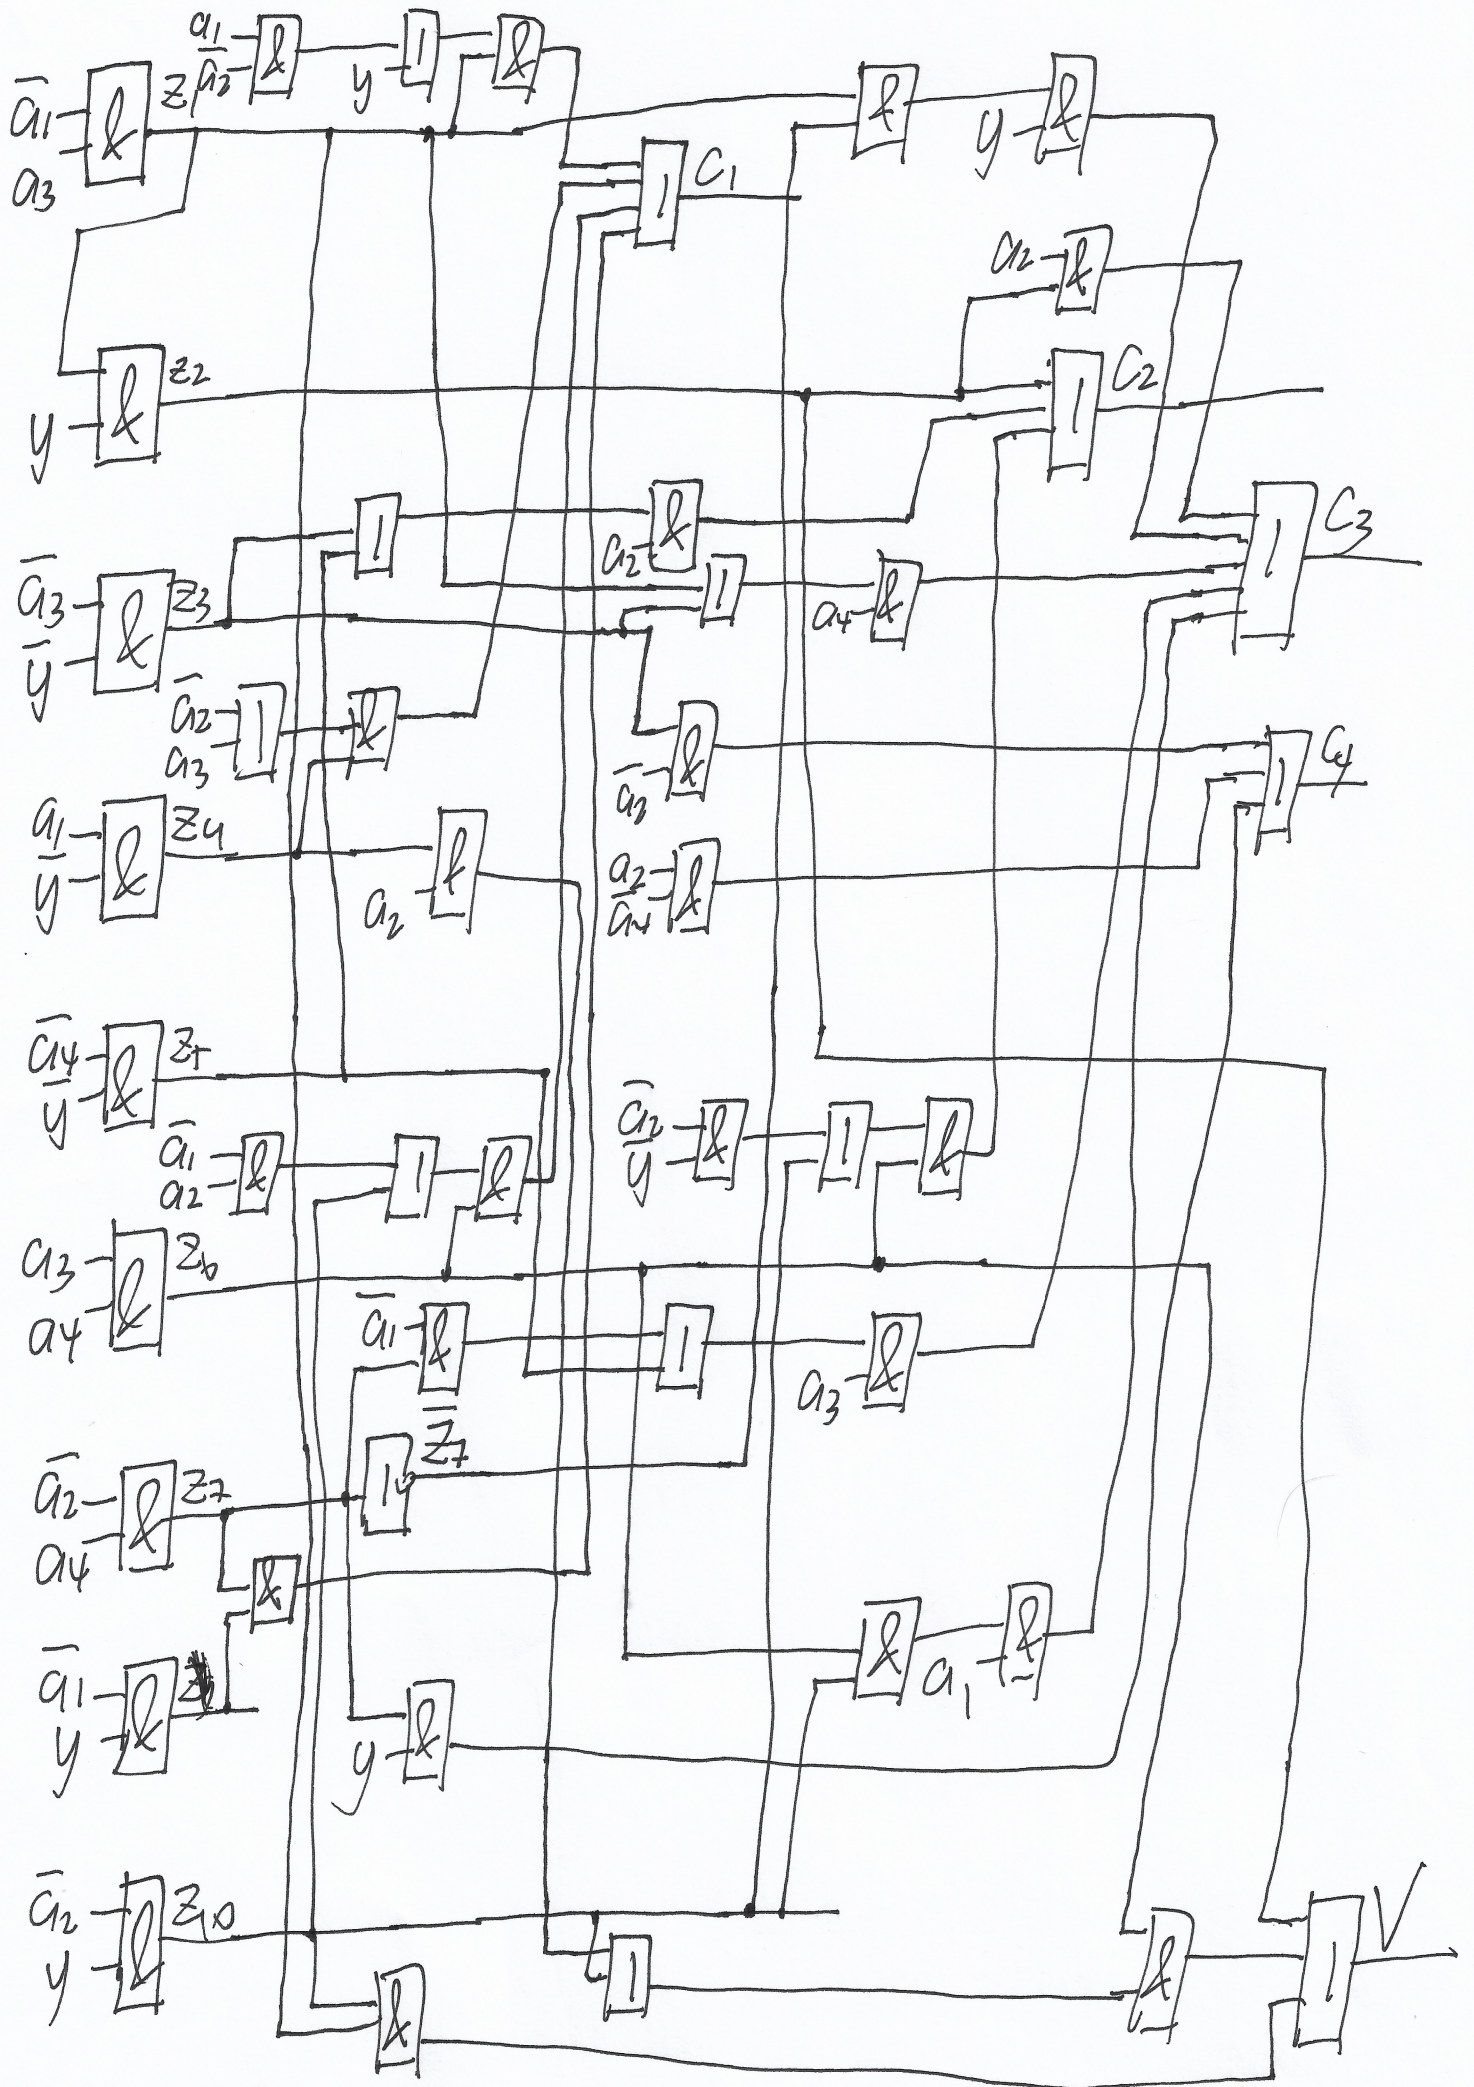 a1
a̅2
&
y
1
&
a̅1
a3
&
z1
&
y
&
1
C1
a2
&
y
&
z2
1
C2
1
a2
&
1
C3
a̅3
y̅
&
z3
1
a4
&
a̅2
a3
1
&
a̅2
&
1
C4
a1
y̅
&
z4
a2
&
a2
a̅4
&
a̅4
y̅
&
a̅1
a2
&
1
&
a̅2
y̅
&
1
&
a3
a4
&
z6
a̅1
&
1
a3
&
a̅2
a4
&
z7
1
z̅7
&
a̅1
y
&
&
a1
&
y
&
a̅2
y
&
z10
&
1
&
1
V